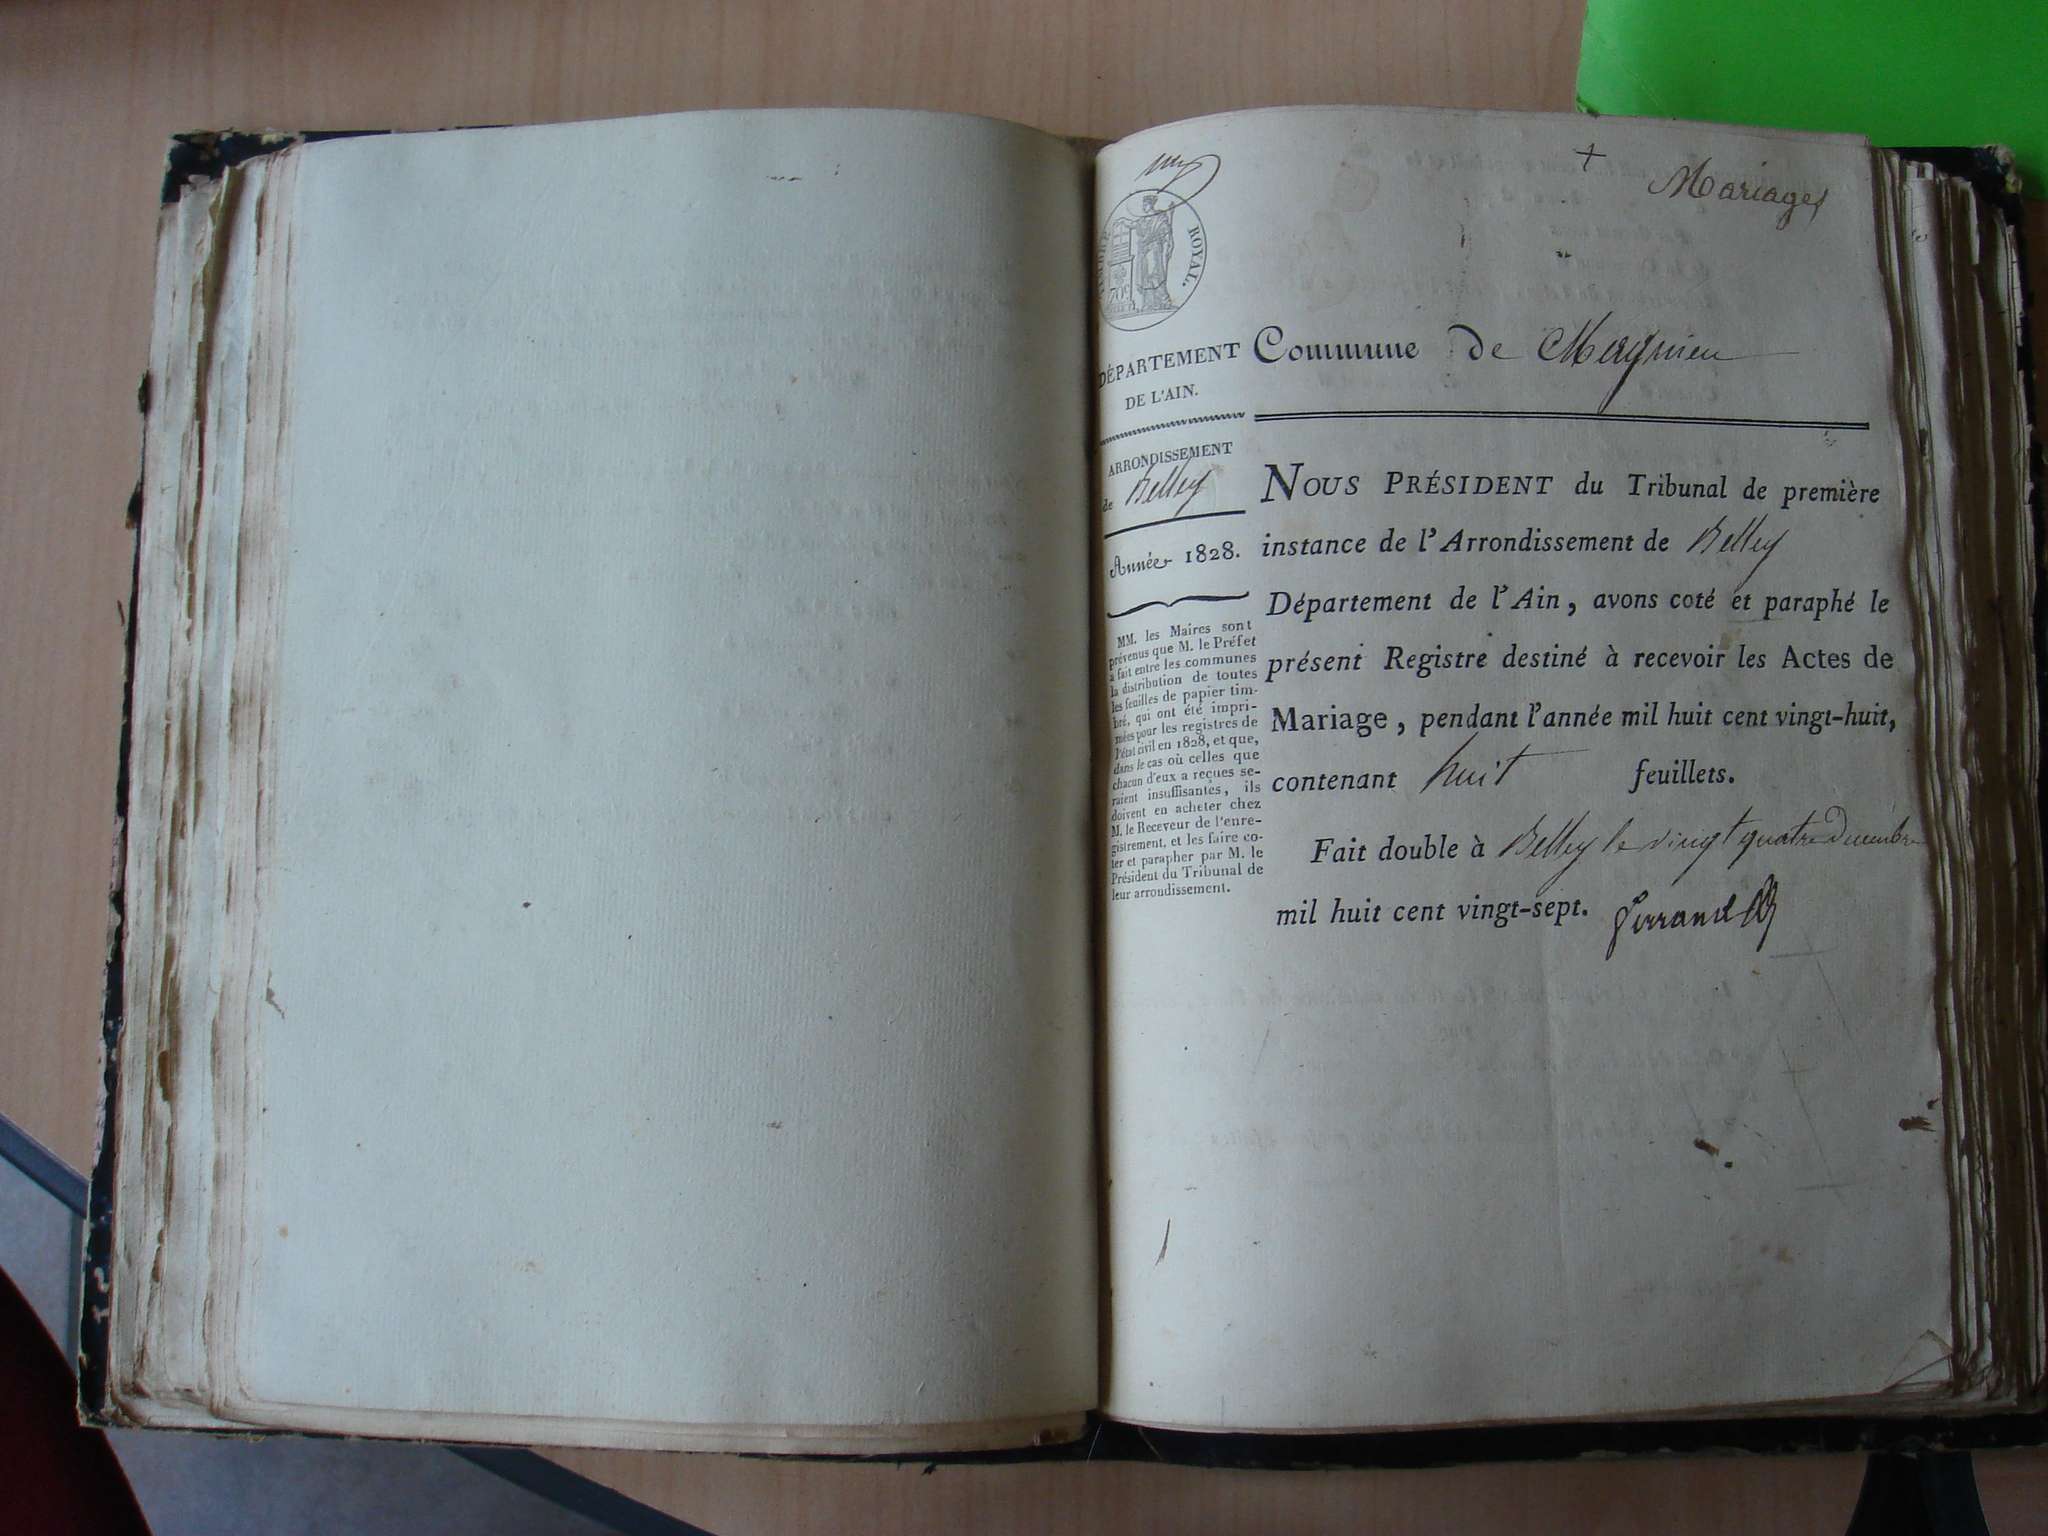 Mariages
TIMBRE ROYAL.
DÉPARTEMENT
DE L'AIN.
Commune de Magnieu
ARRONDISSEMENT
de Belley
Année 1828.
MM. les Maires sont
prévenus que M. le Préfet
a fait entre les communes
la distribution de toutes
les feuilles de papier tim-
bré, qui ont été impri-
mées pour les registres de
l'état civil en 1828, et que,
dans le cas où celles que
chacun d'eux a reçues se-
raient insuffisantes, ils
doivent en acheter chez
M. le Receveur de l'enre-
gistrement, et les faire co-
ter et parapher par M. le
Président du Tribunal de
leur arrondissement.
NOUS PRÉSIDENT du Tribunal de première
instance de l'Arrondissement de Belley
Département de l'Ain, avons coté et paraphé le
présent Registre destiné à recevoir les Actes de
Mariage, pendant l'année mil huit cent vingt-huit,
contenant huit feuillets.
Fait double à Belley le vingt quatre Décembre
mil huit cent vingt-sept.